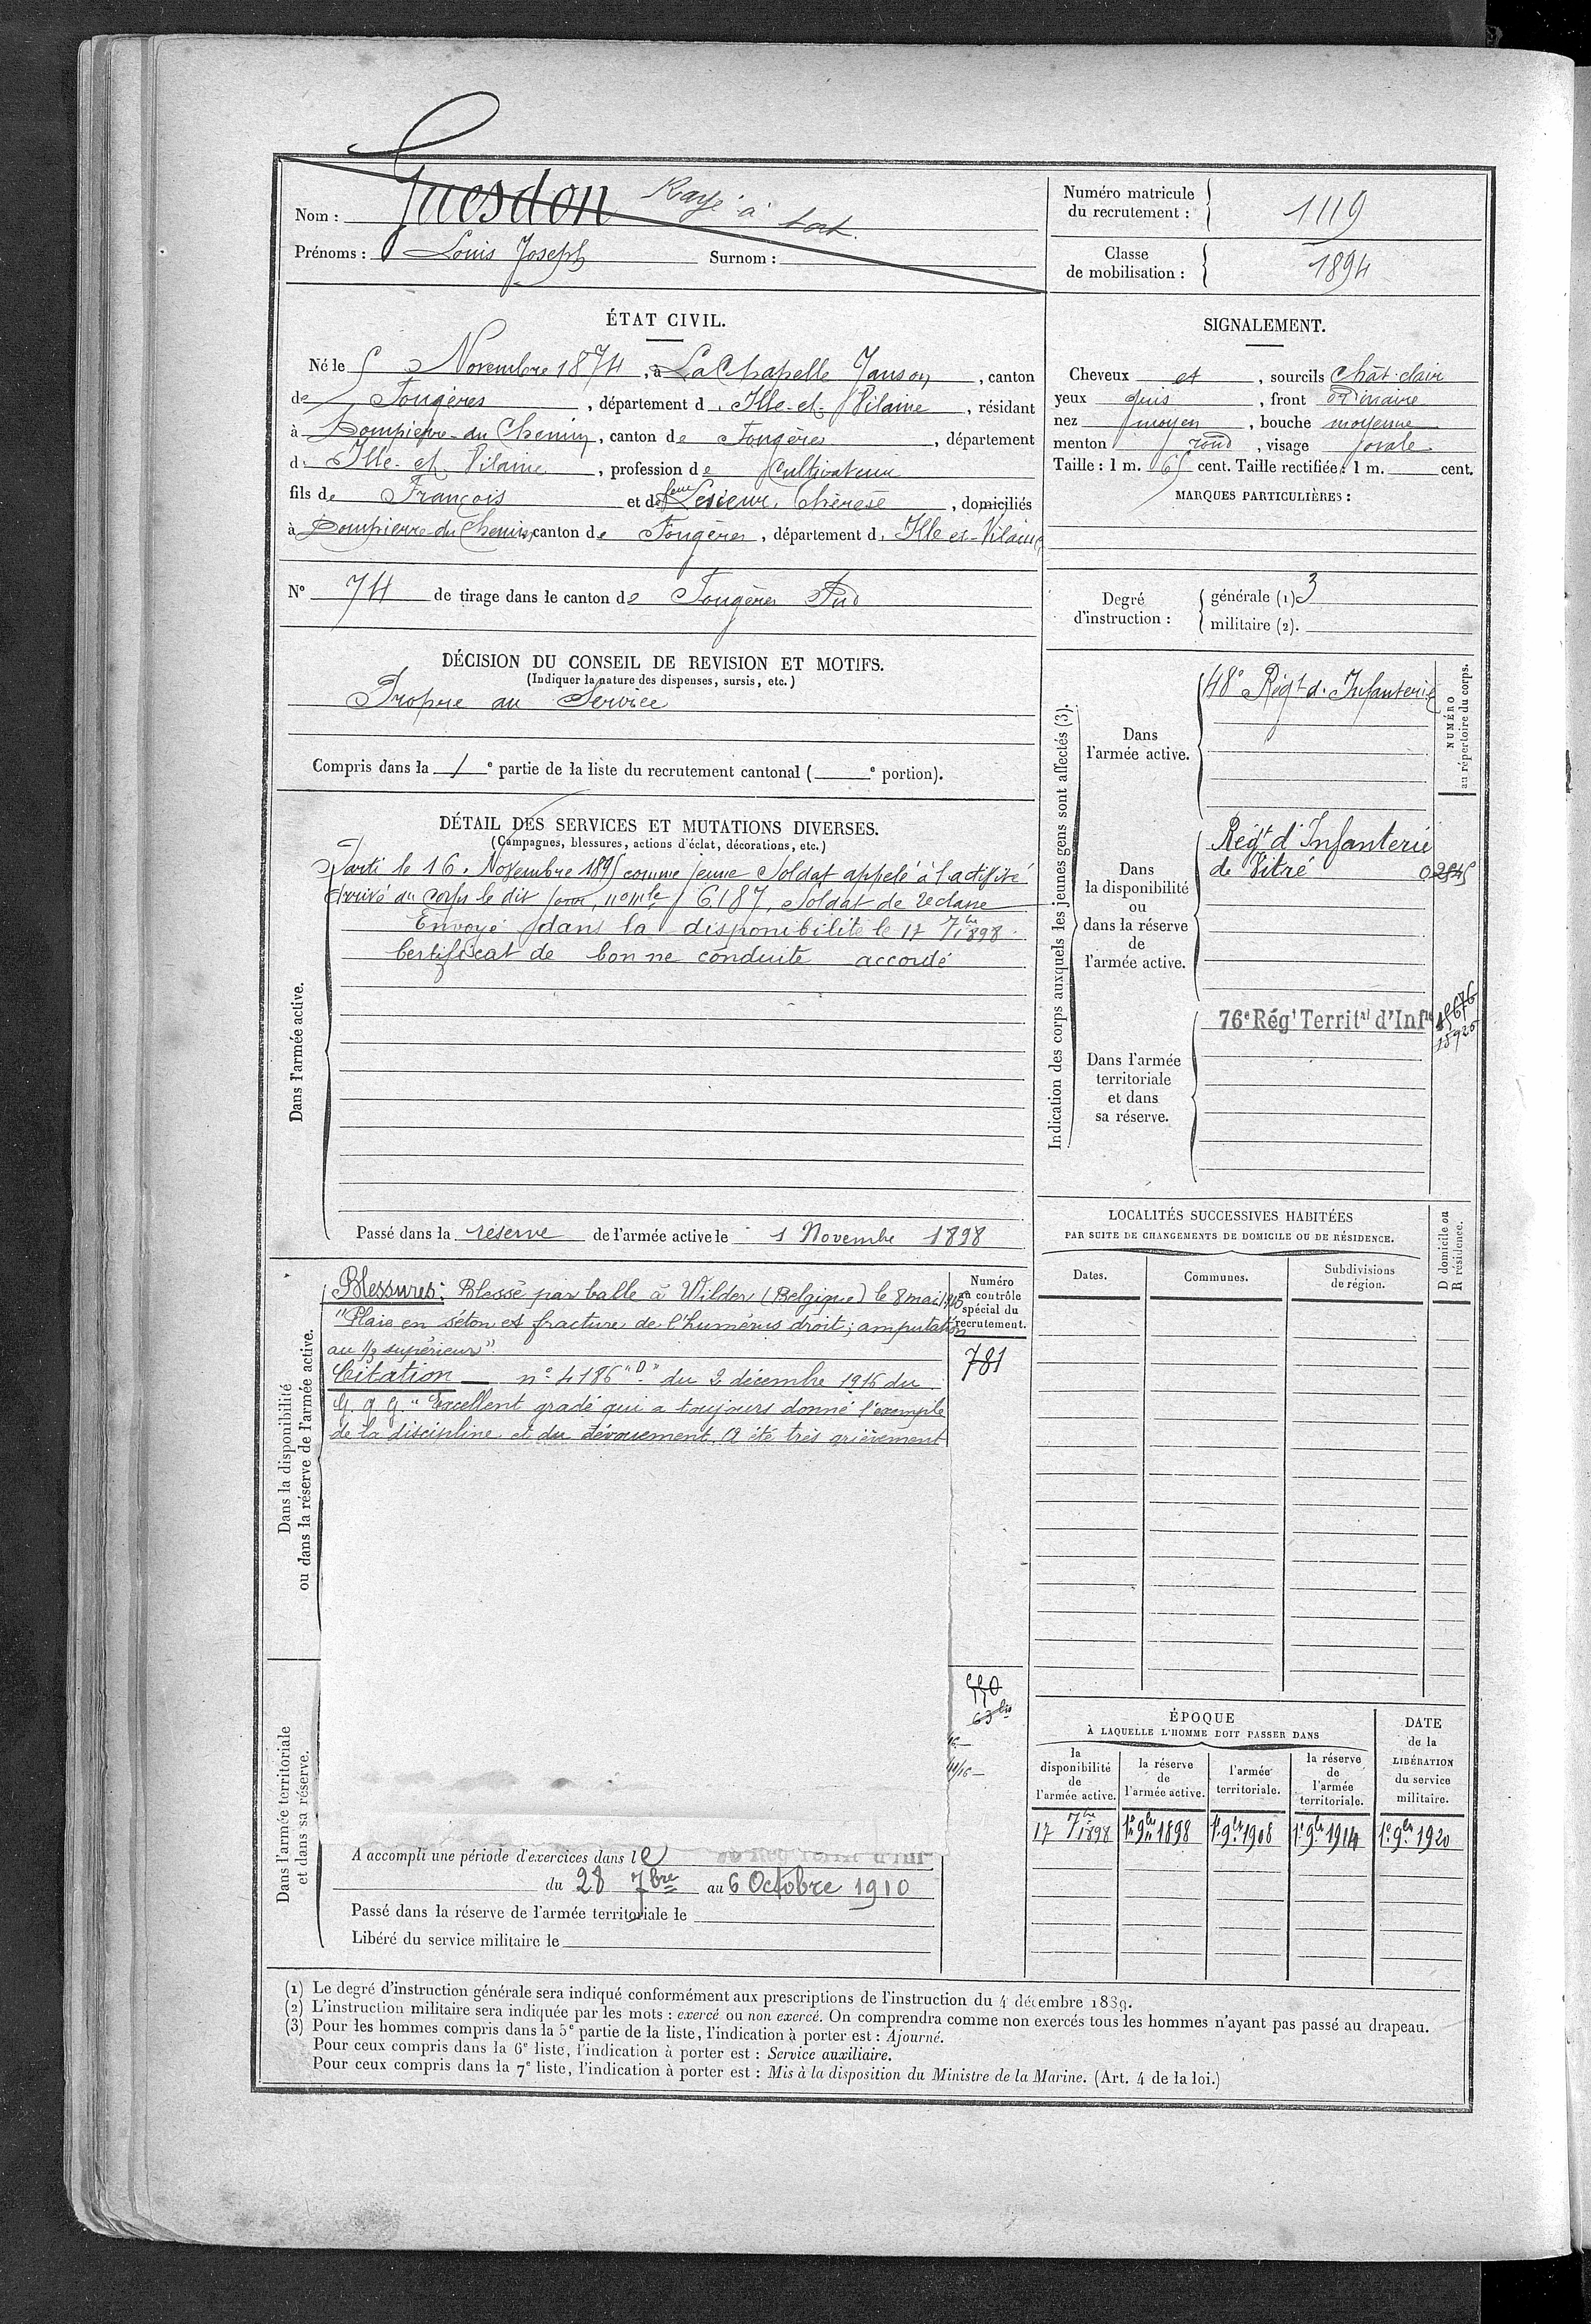 Nom : Guesdon Rayé à tort.
Prénoms : Louis Joseph Surnom :
Numéro matricule du recrutement : 1119
Classe de mobilisation : 1894
ÉTAT CIVIL.
Né le 5 Novembre 1874, à La Chapelle Janson, canton
de Fougères, département d. Ille-et-Vilaine, résidant
à Dompierre-du Chemin, canton de Fougères, département
d. Ille-et Vilaine, profession de Cultivateur
fils de François et de feue Lesieur, Thérèse, domiciliés
à Dompierre-du Chemin, canton de Fougères, département d. Ille et-Vilaine
N° 74 de tirage dans le canton de Fougères Sud
DÉCISION DU CONSEIL DE REVISION ET MOTIFS.
(Indiquer la nature des dispenses, sursis, etc.)
Propre au Service
Compris dans la 1e partie de la liste du recrutement cantonal ( e portion).
SIGNALEMENT.
Cheveux et, sourcils Chât-clair
yeux gris, front ordinaire
nez moyen, bouche moyenne
menton rond, visage ovale
Taille : 1 m. 65 cent. Taille rectifiée : 1 m. cent.
MARQUES PARTICULIÈRES :
Degré d'instruction :
générale (1) 3
militaire (2).
DÉTAIL DES SERVICES ET MUTATIONS DIVERSES.
(Campagnes, blessures, actions d'éclat, décorations, etc.)
Dans l'armée active.
Parti le 16. Novembre 1895 comme jeune Soldat appelé à l'activité
Arrivé au Corps le dit jour, n° mle 6187, Soldat de 2e classe
Envoyé dans la disponibilité le 17 7bre 1898.
Certificat de bonne conduite accordé
Passé dans la réserve de l'armée active le 1 Novembre 1898
Indication des corps auxquels les jeunes gens sont affectés (3).
NUMÉRO au répertoire du corps.
Dans l'armée active.
48e Régt d. Infanterie
Dans la disponibilité ou dans la réserve de l'armée active.
Régt d'Infanterie
de Vitré
Dans l'armée territoriale et dans sa réserve.
76e Régt Territal d'Infie
15925
Dans la disponibilité ou dans la réserve de l'armée active.
Blessures: Blessé par balle à Wilder (Belgique) le 8 mai 1915
"Plaie en séton et fracture de l'humérus droit; amputation
au 1/3 supérieur".
Citation n° 4186 "D" du 2 décembre 1916 du
G. Q G. "Excellent gradé qui a toujours donné l'exemple
de la discipline et du dévouement. A été très grièvement
Numéro au contrôle spécial du recrutement.
781
550
63 bis
LOCALITÉS SUCCESSIVES HABITÉES
PAR SUITE DE CHANGEMENTS DE DOMICILE OU DE RÉSIDENCE.
Dates.
Communes.
Subdivisions de région.
D domicile ou R résidence.
Dans l'armée territoriale et dans sa réserve.
A accompli une période d'exercices dans le
du 28 7bre au 6 Octobre 1910
Passé dans la réserve de l'armée territoriale le
Libéré du service militaire le
ÉPOQUE
À LAQUELLE L'HOMME DOIT PASSER DANS
la disponibilité de l'armée active.
la réserve de l'armée active.
l'armée territoriale.
la réserve de l'armée territoriale.
DATE de la LIBÉRATION du service militaire.
17 7bre 1898 1er 9bre 1898 1er 9bre 1908 1er 9bre 1914 1er 9bre 1920
(1) Le degré d'instruction générale sera indiqué conformément aux prescriptions de l'instruction du 4 décembre 1889.
(2) L'instruction militaire sera indiquée par les mots : exercé ou non exercé. On comprendra comme non exercés tous les hommes n'ayant pas passé au drapeau.
(3) Pour les hommes compris dans la 5e partie de la liste, l'indication à porter est : Ajourné.
Pour ceux compris dans la 6e liste, l'indication à porter est : Service auxiliaire.
Pour ceux compris dans la 7e liste, l'indication à porter est : Mis à la disposition du Ministre de la Marine. (Art. 4 de la loi.)